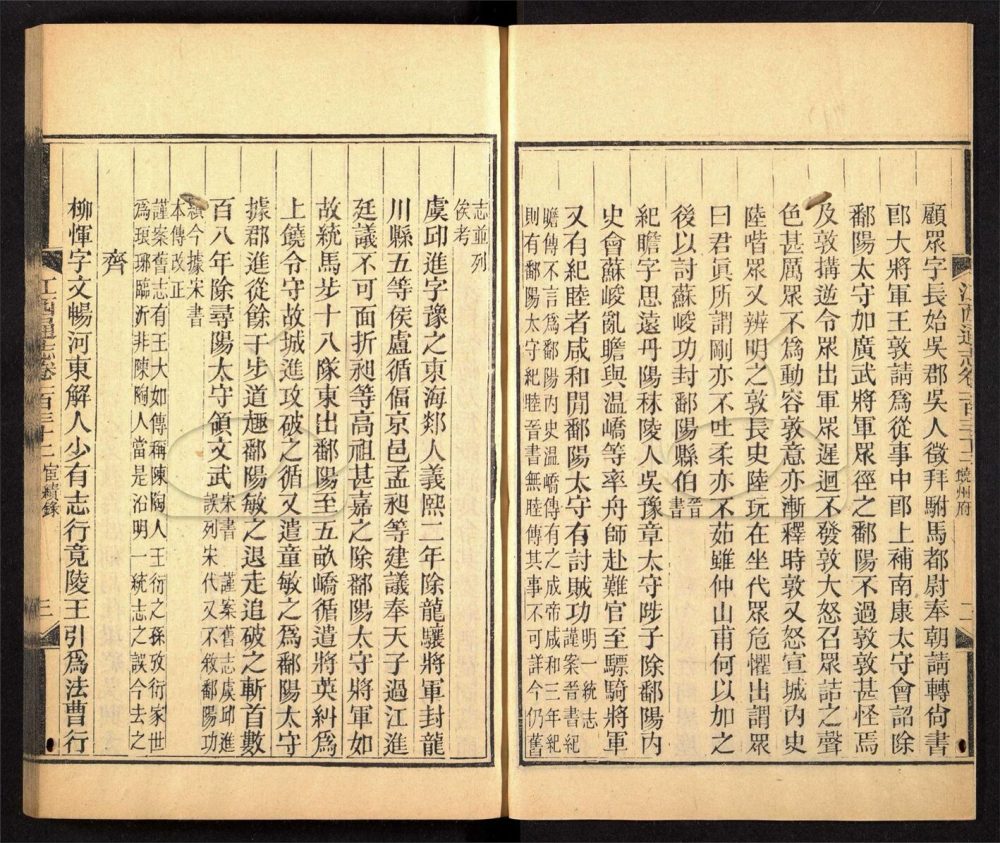 顧眾字長始吳郡吳人徵拜駙馬都尉奉朝請轉尙書
郎大將軍王敦請爲從事中郎上補南康太守會詔除
鄱陽太守加廣武將軍眾徑之鄱陽不過敦敦甚怪焉
及敦搆逆令眾出軍眾遲迴不發敦大怒召眾詰之聲
色甚厲眾不爲動容敦意亦漸釋時敦又怒宣城內史
陸喈眾又辨明之敦長史陸玩在坐代眾危懼出謂眾
曰君眞所謂剛亦不吐柔亦不茹雖仲山甫何以加之
後以討蘇峻功封鄱陽縣伯晉書
紀瞻字思遠丹陽秣陵人吳豫章太守陟子除鄱陽內
史會蘇峻亂瞻與温嶠等率舟師赴難官至驃騎將軍
又有紀睦者咸和閒鄱陽太守有討賊功明一統志 謹案晉書紀
瞻傳不言爲鄱陽內史温嶠傳有之成帝咸和三年紀
則有鄱陽太守紀睦晉書無睦傳其事不可詳今仍舊
江西通志卷一百三十二 饒州府 二
志並列
俟考
虞邱進字豫之東海郯人義熙二年除龍驤將軍封龍
川縣五等侯盧循偪京邑孟昶等建議奉天子過江進
廷議不可面折昶等高祖甚嘉之除鄱陽太守將軍如
故統馬步十八隊東出鄱陽至五畝嶠循遣將英糾爲
上饒令守故城進攻破之循又遣童敏之爲鄱陽太守
據郡進從餘干步道趣鄱陽敏之退走追破之斬首數
百八年除尋陽太守領文武宋書 謹案舊志虞邱進
誤列宋代又不敘鄱陽功
績今據宋書
本傳改正
謹案舊志有王大如傳稱陳陶人王衍之孫攷衍家世
爲琅琊臨沂非陳陶人當是沿明一統志之誤今去之
齊
柳惲字文暢河東解人少有志行竟陵王引爲法曹行
江西通志卷一百三十二 宦績錄 三